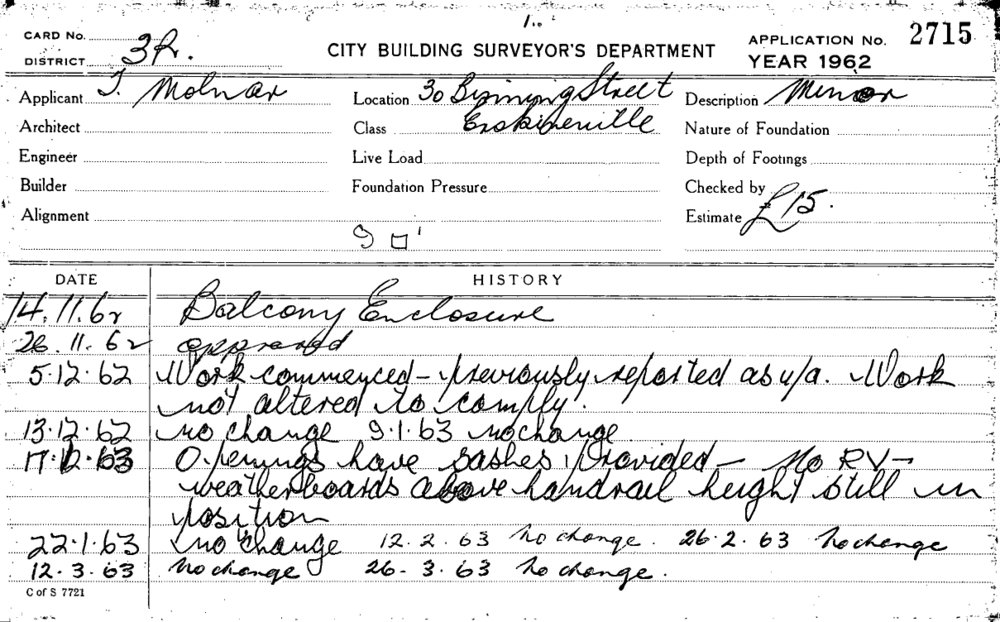 CARD No.
DISTRICT 3R.
CITY BUILDING SURVEYOR'S DEPARTMENT
APPLICATION No. 2715
YEAR 1962
Applicant J. Molnar
Location 30 Binning Street
Description Minor
Architect
Class Erskineville
Nature of Foundation
Engineer
Live Load
Depth of Footings
Builder
Foundation Pressure
Checked by
Alignment
Estimate £15.
9 □'
DATE HISTORY
14.11.62 Balcony Enclosure
26.11.62 approved
5.12.62 Work commenced - previously reported as u/a. Work
not altered to comply.
13.12.62 no change 9.1.63 no change
Openings have sashes provided - No RV -
weatherboards above handrail height still in
position
22.1.63 no change 12.2.63 No change. 26.2.63 No change
12.3.63 No change 26.3.63 No change.
C of S 7721